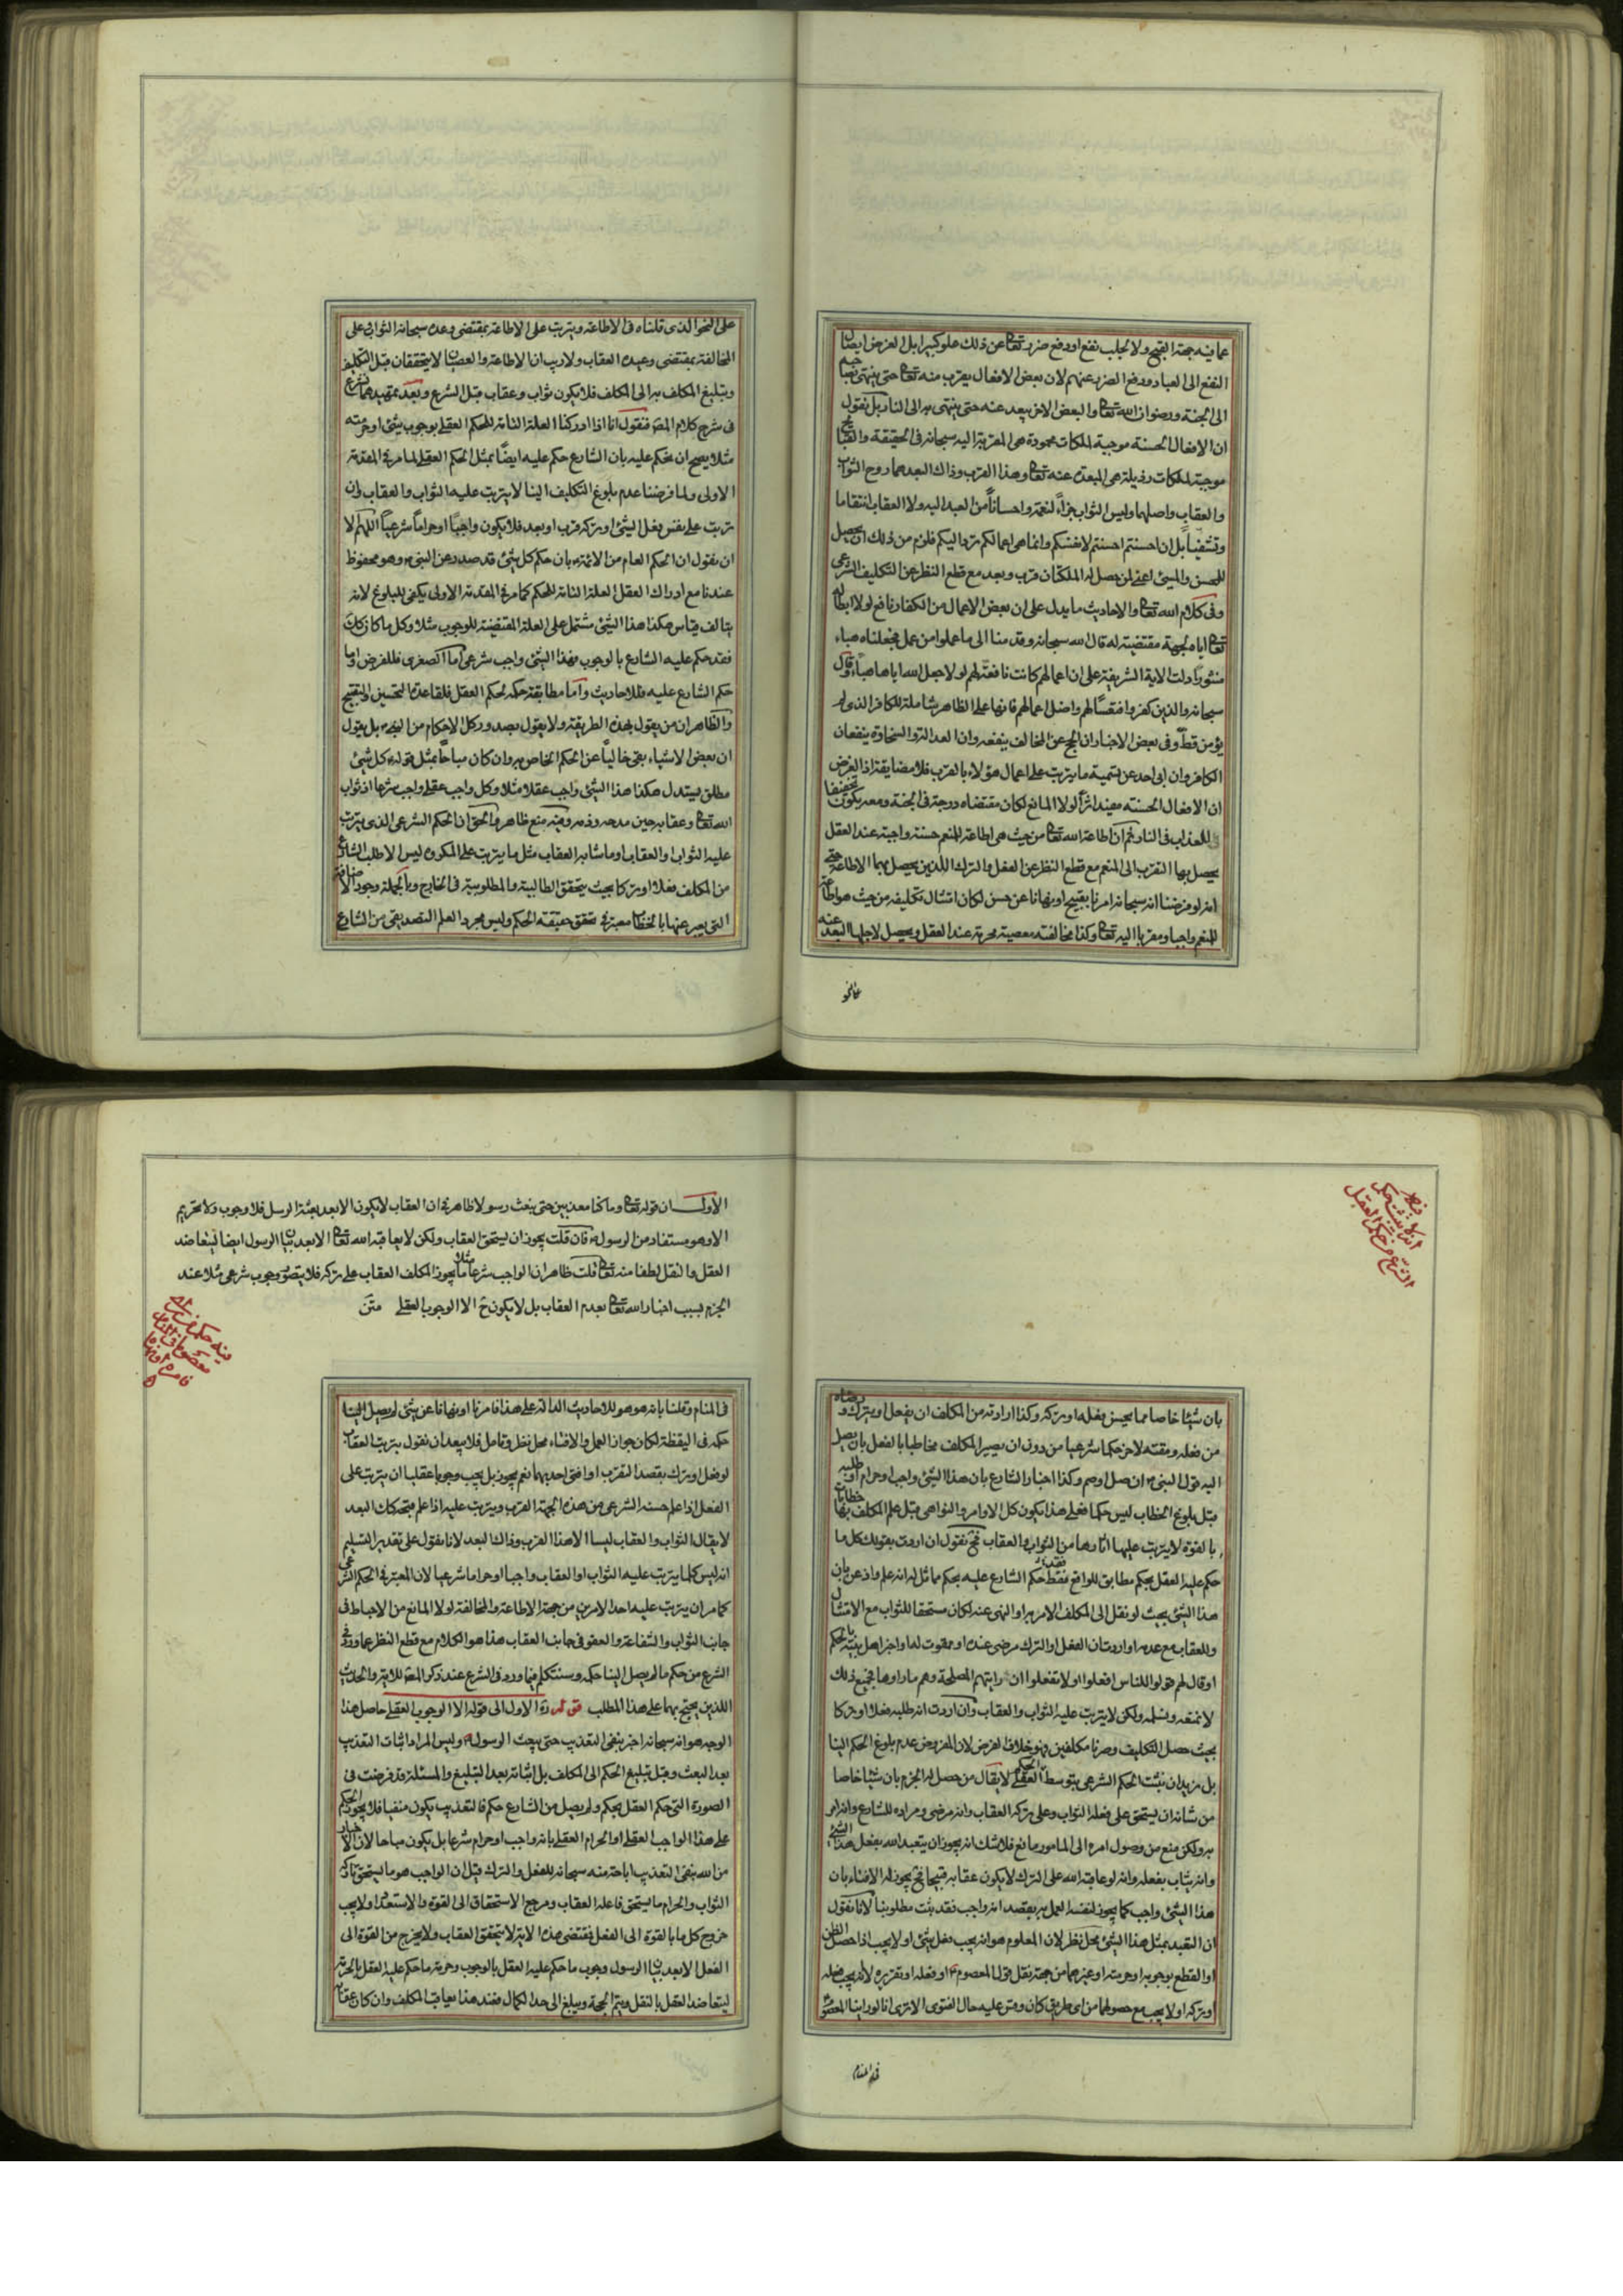 عما فيه جهة القبح ولا لجلب نفع او دفع ضرر تعالى عن ذلك علوا كبيرا بل الغرض ايصال
النفع الى العباد ودفع الضرر عنهم لان بعض الافعال يقرب منه تعالى حتى ينتهى بصاحبه
الى الجنة ورضوان الله تعالى والبعض الاخر يبعد عنه حتى ينتهى به الى النار بل نقول
ان الافعال الحسنة موجبة لملكات محمودة هى المقربة اليه سبحانه فى الحقيقة والقبايح
موجبة لملكات رذيلة هى المبعدة عنه تعالى وهذا القرب وذاك البعد هما روح الثواب
والعقاب واصلهما وليس الثواب جزاء لنعمة واحسانا من العبد اليه ولا العقاب انتقاما
وتشفيا بل ان احسنتم احسنتم لانفسكم وانما هى اعمالكم ترد اليكم فلزم من ذلك ان يحصل
للمحسن والمسيئ اعنى لمن حصل له الملكتان قرب وبعد مع قطع النظر عن التكليف الشرعى
وفى كلام الله تعالى والاحاديث ما يدل على ان بعض الاعمال من الكفار نافع لولا ابطاله
تعالى اياه لجهة مقتضية له قال الله سبحانه وقدمنا الى ما عملوا من عمل فجعلناه هباء
منثورا دلت الاية الشريفة على ان اعمالهم كانت نافعة لهم لولا جعل الله اياها هباء وقال
سبحانه والذين كفروا فتعسا لهم واضل اعمالهم فانها على الظاهر شاملة للكافر الذى لم
يؤمن قط وفى بعض الاخبار ان الحج عن المخالف ينفعه وان العدالة والسخاوة ينفعان
الكافر وان ابى احد عن تسمية ما يترتب على اعمال هؤلاء بالقرب فلا مضايقة اذ الغرض
ان الافعال الحسنة مفيد اثرا لولا المانع لكان مقتضاه درجة فى الجنة ومعه يكون تخفيفا
للعذاب فى النار ثم ان اطاعة الله تعالى من حيث هى اطاعة للمنعم حسنة واجبة عند العقل
يحصل بها التقرب الى المنعم مع قطع النظر عن الفعل والترك اللذين يحصل بهما الاطاعة حتى
انه لو فرضنا انه سبحانه امرنا بقبيح او نهانا عن حسن لكان امتثال تكليفه من حيث هو اطاعة
للمنعم واجبا ومقربا اليه تعالى وكذا مخالفته معصية محرمة عند العقل ويحصل لاجلها البعد عنه
على النحو
على النحو الذى قلناه فى الاطاعة ويترتب على الاطاعة بمقتضى وعده سبحانه الثواب وعلى
المخالفة بمقتضى وعيده العقاب ولا ريب ان الاطاعة والعصيان لا يتحققان قبل التكليف
وتبليغ المكلف به الى المكلف فلا يكون ثواب وعقاب قبل الشرع وبعد تمهيد هما نشرع
فى شرح كلام المصـ فنقول انا اذا ادركنا العلة التامة للحكم العقلى بوجوب شيئ او حرمته
مثلا يصح ان نحكم عليه بان الشارع حكم عليه ايضا بمثل الحكم العقلى لما مر فى المقدمة
الاولى ولما فرضنا عدم بلوغ التكليف الينا لا يترتب عليه الثواب والعقاب وان
ترتب على نفس فعل الشيئ او تركه قرب او بعد فلا يكون واجبا او حراما شرعيا اللهم الا
ان نقول ان الحكم العام من الائمة بان حكم كل شيئ قد صدر عن النبى وهو محفوظ
عندنا مع ادراك العقل العلة التامة للحكم كما مر فى المقدمة الاولى يكفى للبلوغ لانه
يتالف قياس هكذا هذا الشيئ مشتمل على العلة المقتضية للوجوب مثلا وكل ما كان كذلك
فقد حكم عليه الشارع بالوجوب فهذا الشيئ واجب شرعى اما الصغرى فللفرض واما
حكم الشارع عليه فللاحاديث واما مطابقة حكمه لحكم العقل فلقاعدة التحسين والتقبيح
والظاهر ان من يقول بهذه الطريقة ولا يقول بصدور كل الاحكام من النبى بل يقول
ان بعض الاشياء بقى خاليا عن الحكم الخاص به وان كان مباحا بمثل قوله كل شيئ
مطلق يستدل هكذا هذا الشيئ واجب عقلا مثلا وكل واجب عقلى واجب شرعا اذ ثواب
الله تعالى وعقابه حين مدحه وذمه وفيه منع ظاهر والحق ان الحكم الشرعى الذى يترتب
عليه الثواب والعقاب او ما شابه العقاب مثل ما يترتب على المكروه ليس الا طلب الشارع
من المكلف فعلا او تركا بحيث يتحقق الطالبية والمطلوبية فى الخارج وبالجملة وجود الاضافة
التى يعبر عنها بالخطاب معتبر فى تحقق حقيقة الحكم وليس مجرد العلم التصديقى من الشارع
فيه انه لا يثبت حكم الشرع من حكم العقل
بان شيئا خاصا مما يحسن فعله او تركه وكذا ارادته من المكلف ان يفعل او يترك ورضاه
من فعله ومقته لاخر حكما شرعيا من دون ان يصير المكلف مخاطبا بالفعل بان يصل
اليه قول النبى ان صل وصم وكذا اخبار الشارع بان هذا الشيئ واجب او حرام او طلبه
قبل بلوغ الخطاب ليس حكما فعلى هذا يكون كل الاوامر والنواهى قبل علم المكلف بها خطابات
بالقوة لا يترتب عليها اثارها من الثواب والعقاب فح نقول ان اردت بقولك كل ما
حكم عليه العقل بحكم مطابق للواقع فقد حكم الشارع عليه بحكم مماثل له انه علم واذعن بان
هذا الشيئ بحيث لو نقل الى المكلف الامر به او النهى عنه لكان مستحقا للثواب مع الامتثال
وللعقاب مع عدمه او اردت ان الفعل او الترك مرضى عنده او ممقوت له او اخبر اهل بيته بالحكم
او قال لهم قولوا للناس افعلوا او لا تفعلوا ان رايتهم المصلحة وهم ما راوها فجميع ذلك
لا نمنعه ونسلمه ولكن لا يترتب عليه الثواب والعقاب وان اردت انه طلبه فعلا او تركا
بحيث حصل التكليف وصرنا مكلفين فهو خلاف الفرض لان المفروض عدم بلوغ الحكم الينا
بل نريد ان نثبت الحكم الشرعى بتوسط الحكم العقلى لا يقال من حصل له الجزم بان شيئا خاصا
من شانه ان يستحق على فعله الثواب وعلى تركه العقاب وانه مرضى ومراده للشارع وانه امر
به ولكن منع من وصول امره الى المامور مانع فلا شك انه يجوز ان يتعبد الله بفعل هذا الشيئ
وانه يثاب بفعله وانه لو عاقبه الله على الترك لا يكون عقابه قبيحا فح يجوز له الافتاء بان
هذا الشيئ واجب كما يجوز لنفسه العمل به بقصد انه واجب فقد ثبت مطلوبنا لانا نقول
ان التعبد بمثل هذا الشيئ محل نظر لان المعلوم هو انه يجب فعل شيئ او لا يجب اذا حصل الظن
او القطع بوجوبه او حرمته او غيرهما من جهة نقل قول المعصوم او فعله او تقريره لا انه يجب فعله
او تركه او لا يجب مع حصولهما من اى طريق كان وقس عليه حال الفتوى الا ترى انا لو راينا المعصوم
فى المنام
الاول ان قوله تعالى وما كنا معذبين حتى نبعث رسولا ظاهر فى ان العقاب لا يكون الا بعد بعثة الرسل فلا وجوب ولا تحريم
الا وهو مستفاد من الرسول فان قلت يجوز ان يستحق العقاب ولكن لا يعاقبه الله تعالى الا بعد بيان الرسول ايضا ليتعاضد
العقل والنقل لطفا منه تعالى قلت ظاهر ان الواجب شرعا مثلا ما يجوز المكلف العقاب على تركه فلا يتصور وجوب شرعى مثلا عند
الجزم بسبب اخبار الله تعالى بعدم العقاب بل لا يكون ح الا الوجوب العقلى متن
فى المنام وقلنا بانه هو هو للاحاديث الدالة على هذا فامرنا او نهانا عن شيئ لم يصل الينا
حكمه فى اليقظة لكان جواز العمل والافتاء محل نظر وتامل فلا يبعد ان نقول بترتب العقاب
لو فعل او ترك بقصد التقرب او افتى احد بهما نعم يجوز بل يجب وجوبا عقليا ان يترتب على
الفعل اذا علم حسنه الشرعى من هذه الجهة القرب ويترتب عليه اذا علم قبحه كك البعد
لا يقال الثواب والعقاب ليسا الا هذا القرب وذاك البعد لانا نقول على تقدير التسليم
انه ليس كلما يترتب عليه الثواب او العقاب واجبا او حراما شرعيا لان المعتبر فى الحكم الشرعى
كما مر ان يترتب عليه احد الامرين من جهة الاطاعة والمخالفة لولا المانع من الاحباط فى
جانب الثواب والشفاعة والعفو فى جانب العقاب هذا هو الكلام مع قطع النظر عما ورد فى
الشرع من حكم ما لم يصل الينا حكمه وسنتكلم فيما ورد فى الشرع عند ذكر المصـ للاية والحديث
اللذين يحتج بهما على هذا المطلب قوله ره الاول الى قوله الا الوجوب العقلى حاصل هذا
الوجه هو انه سبحانه اخبر بنفى التعذيب حتى يبعث الرسول وليس المراد اثبات التعذيب
بعد البعث وقبل تبليغ الحكم الى المكلف بل اثباته بعد التبليغ والمسئلة قد فرضت فى
الصورة التى حكم العقل بحكم ولم يصل من الشارع حكم فالتعذيب يكون منفيا فلا يجوز الحكم
على هذا الواجب العقلى او الحرام العقلى بانه واجب او حرام شرعا بل يكون مباحا لان الاخبار
من الله بنفى التعذيب اباحة منه سبحانه للفعل والترك قيل ان الواجب هو ما يستحق تاركه
الثواب والحرام ما يستحق فاعله العقاب ومرجع الاستحقاق الى القوة والاستعداد ولا يجب
خروج كل ما بالقوة الى الفعل فمقتضى هذه الاية لا يتحقق العقاب ولا يخرج من القوة الى
الفعل الا بعد بيان الرسول وجوب ما حكم عليه العقل بالوجوب وحرمة ما حكم عليه العقل بالحرمة
ليتعاضد العقل بالنقل ويتم الحجة ويبلغ الى حد الكمال فعند هذا يعاقب المكلف وان كان عقاب